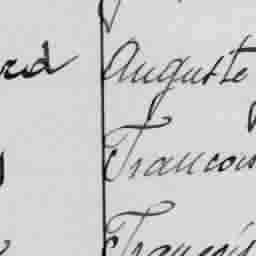 rd Auguste
Francois
François